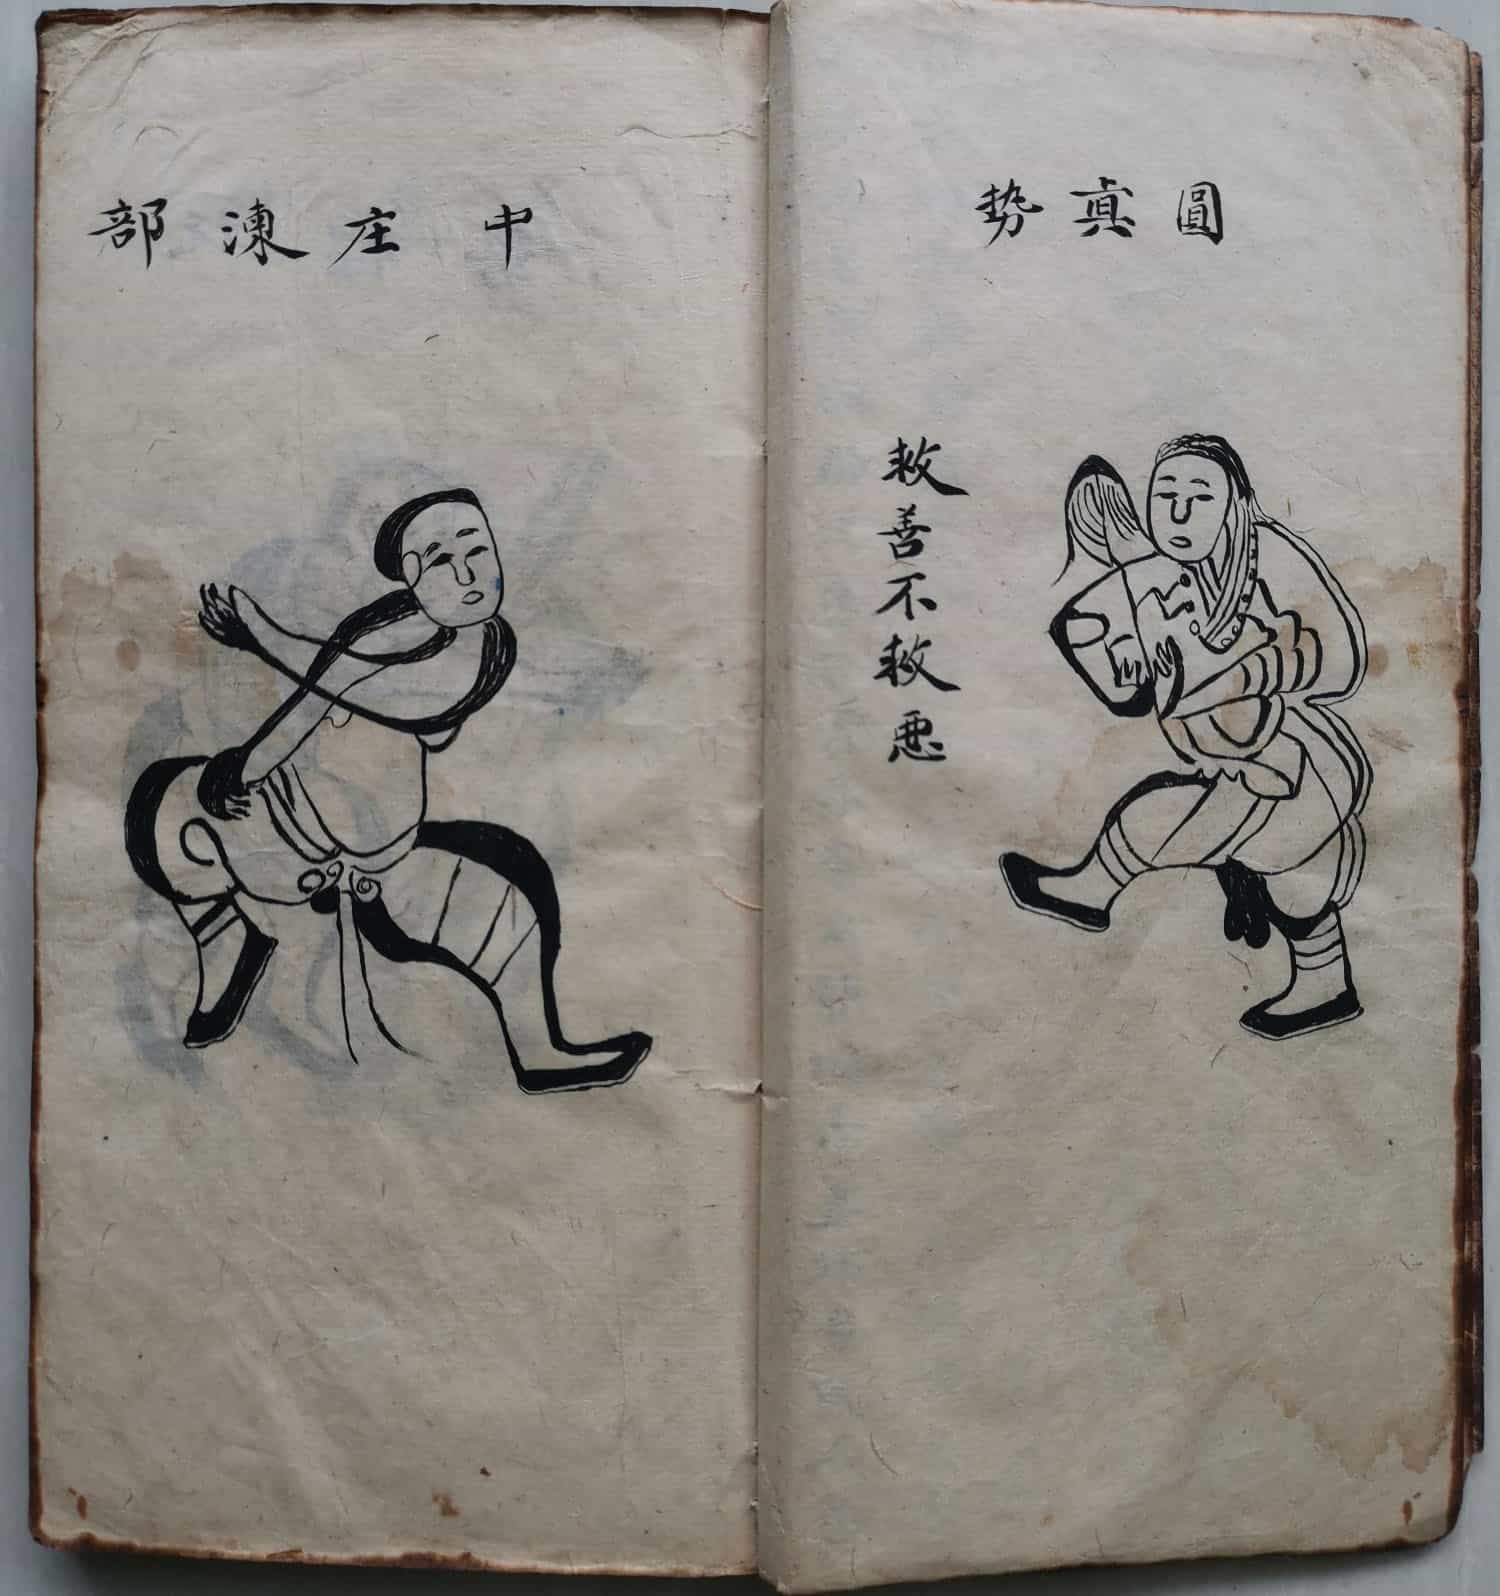 圓真勢
救善不救惡
中庄湅部